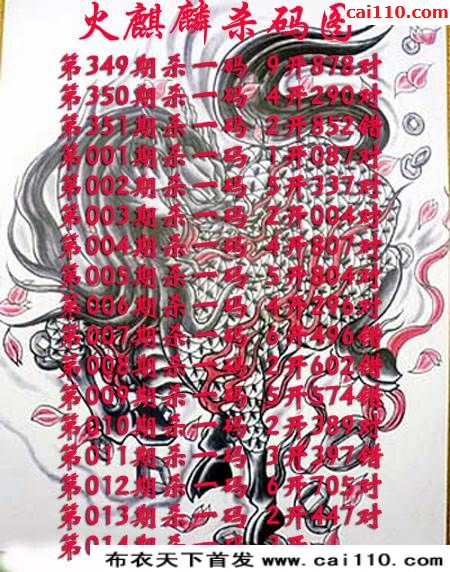 cai110.com
火麒麟杀码图
第349期杀一码 9开878对
第350期杀一码 4开290对
第351期杀一码 2开852错
第001期杀一码 1开087对
第002期杀一码 5开337对
第003期杀一码 2开004对
第004期杀一码 4开807对
第005期杀一码 5开804对
第006期杀一码 4开296对
第007期杀一码 6开496错
第008期杀一码 2开602错
第009期杀一码 5开574错
第010期杀一码 2开389对
第011期杀一码 3开397错
第012期杀一码 6开705对
第013期杀一码 2开447对
第014期杀一码
布衣天下首发 www.cai110.com